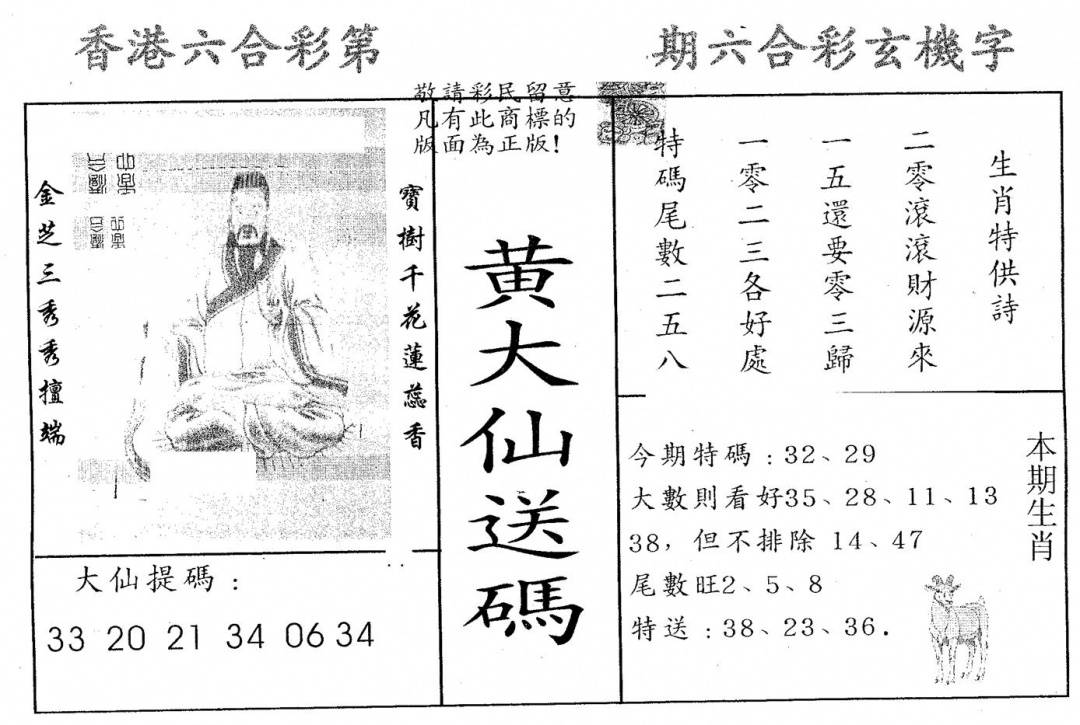 香港六合彩第　期六合彩玄機字
敬請彩民留意
凡有此商標的
版面為正版！
金芝三秀秀擅端
寶樹千花蓮蕊香
大仙提碼：
33 20 21 34 06 34
黄大仙送碼
生肖特供詩
二零滾滾財源來
一五還要零三歸
一零二三各好處
特碼尾數二五八
本期生肖
今期特碼：32、29
大數則看好35、28、11、13
38，但不排除 14、47
尾數旺2、5、8
特送：38、23、36.